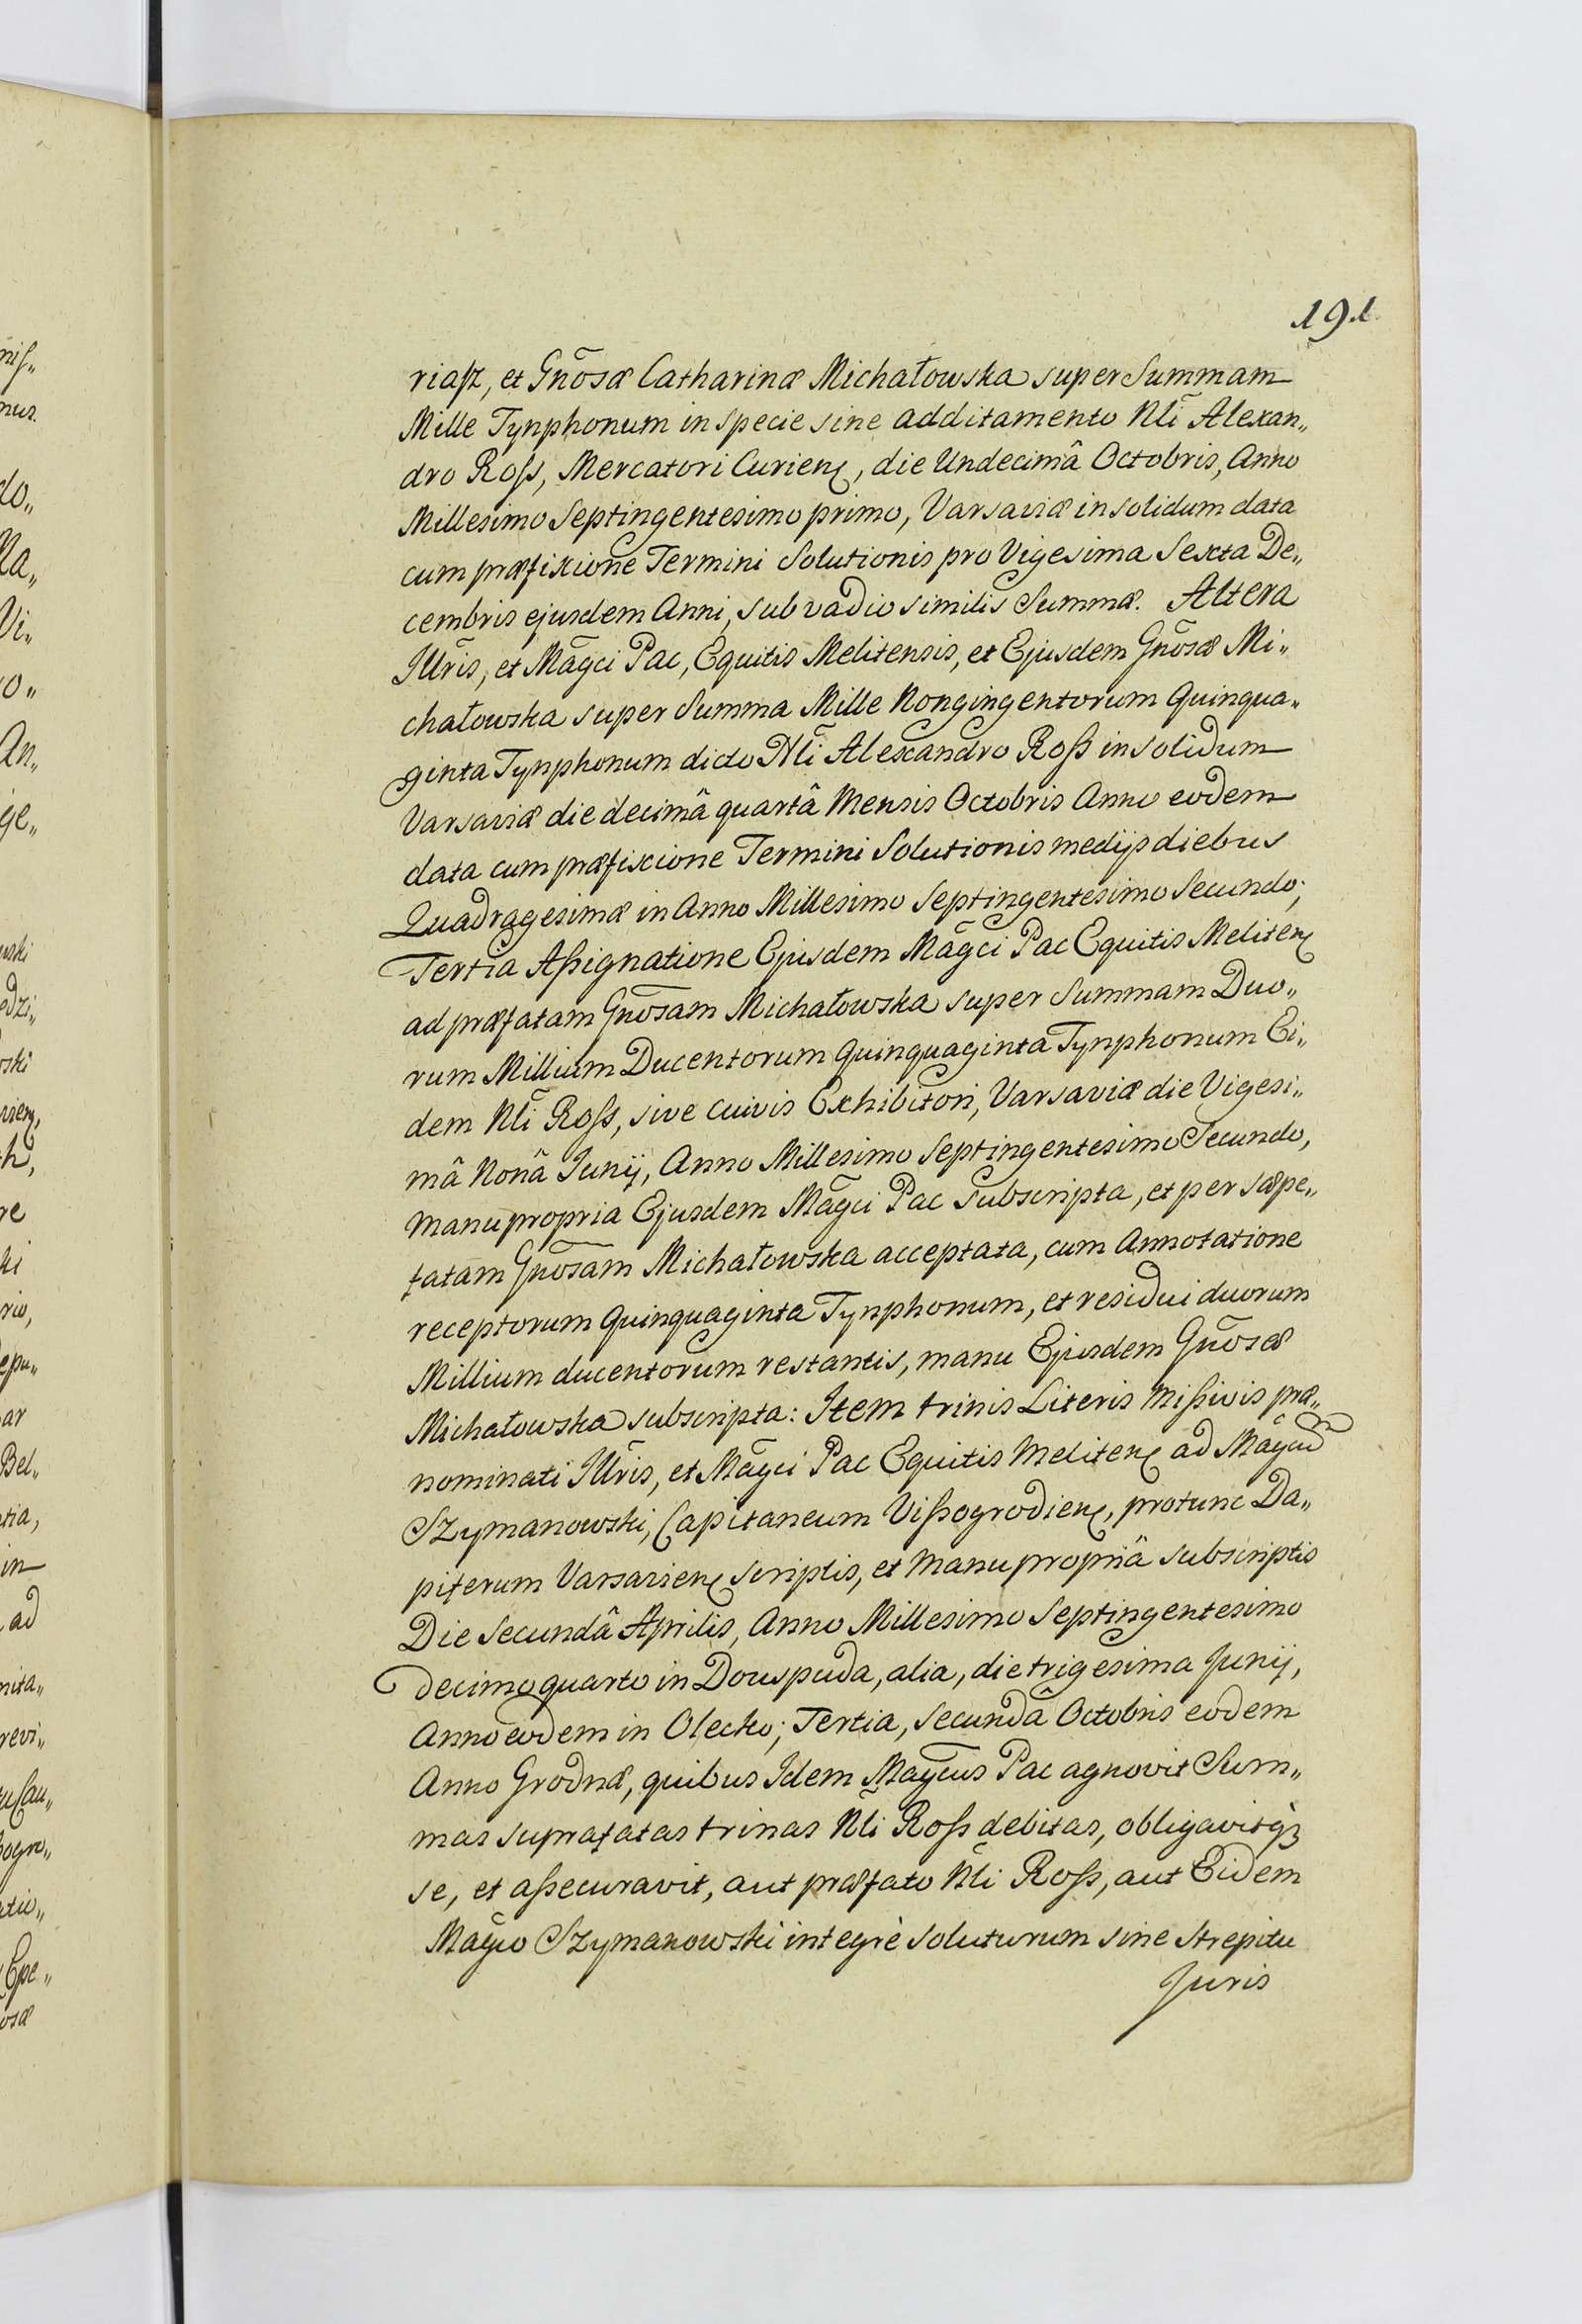 191.
riasz, et Gnõsæ Catharinæ Michałowska super Summam
Mille Tynphonum in specie sine additamento Nli Alexan„
dro Ross, Mercatori Curien, die Undecimâ Octobris, Anno
Millesimo Septingentesimo primo, Varsaviæ in solidum data
cum præfixione Termini Solutionis pro Vigesima Sexta De„
cembris ejusdem Anni, sub vadio similis Summæ. Altera
Illris, et Magci Pac, Equitis Melitensis, et Ejusdem Gnõsæ Mi„
chałowska super Summa Mille Nongingentorum Quinqua„
ginta Tynphonum dicto Nli Alexandro Ross in solidum
Varsaviæ die decimâ quartâ Mensis Octobris Anno eodem
data cum præfixione Termini Solutionis medijs diebus
Quadragesimæ in Anno Millesimo Septingentesimo Secundo;
Tertia Assignatione Ejusdem Magci Pac Equitis Meliten
ad præfatam Gnõsam Michałowska super Summam Duo„
rum Millium Ducentorum Quinquaginta Tynphonum Ei„
dem Nli Ross, sive cuivis Exhibitori, Varsaviæ die Vigesi„
mâ Nonâ Junij, Anno Millesimo Septingentesimo Secundo,
manu propria Ejusdem Magci Pac subscripta, et per sæpe„
fatam Gnõsam Michałowska acceptata, cum Annotatione
receptorum Quinquaginta Tynphonum, et residui duorum
Millium ducentorum restantis, manu Ejusdem Gnõsæ
Michałowska subscripta: Item trinis Literis Missivis præ„
nominati Illris, et Magci Pac Equitis Meliten ad Magcum
Szymanowski, Capitaneum Vissogrodien, protunc Da„
piferum Varsavien scriptis, et Manu propriâ subscriptis
Die Secundâ Aprilis, Anno Millesimo Septingentesimo
decimo quarto in Dowspuda, alia, die trigesima Junij,
Anno eodem in Olecko; Tertia, Secundâ Octobris eodem
Anno Grodnæ, quibus Idem Magcus Pac agnovit Sum„
mas suprafatas trinas Nli Ross debitas, obligavitqз
se, et assecuravit, aut præfato Nli Ross, aut Eidem
Magco Szymanowski integrè soluturum sine strepitu
Juris